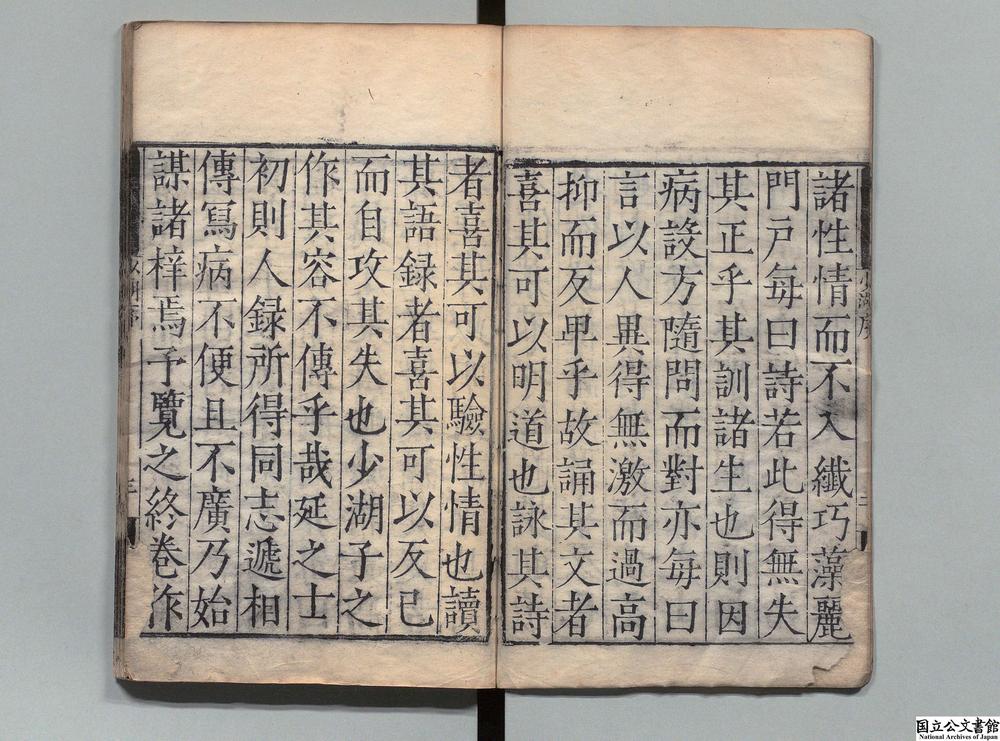 諸性情而不入纖巧藻麗
門戸每曰詩若此得無失
其正乎其訓諸生也則因
病設方隨問而對亦每曰
言以人異得無激而過高
抑而反卑乎故誦其文者
喜其可以明道也詠其詩
者喜其可以驗性情也讀
其語録者喜其可以反己
而自攻其失也少湖子之
作其容不傳乎哉延之士
初則人録所得同志遞相
傳寫病不便且不廣乃始
謀諸梓焉予覽之終卷作
国立公文書館
National Archives of Japan